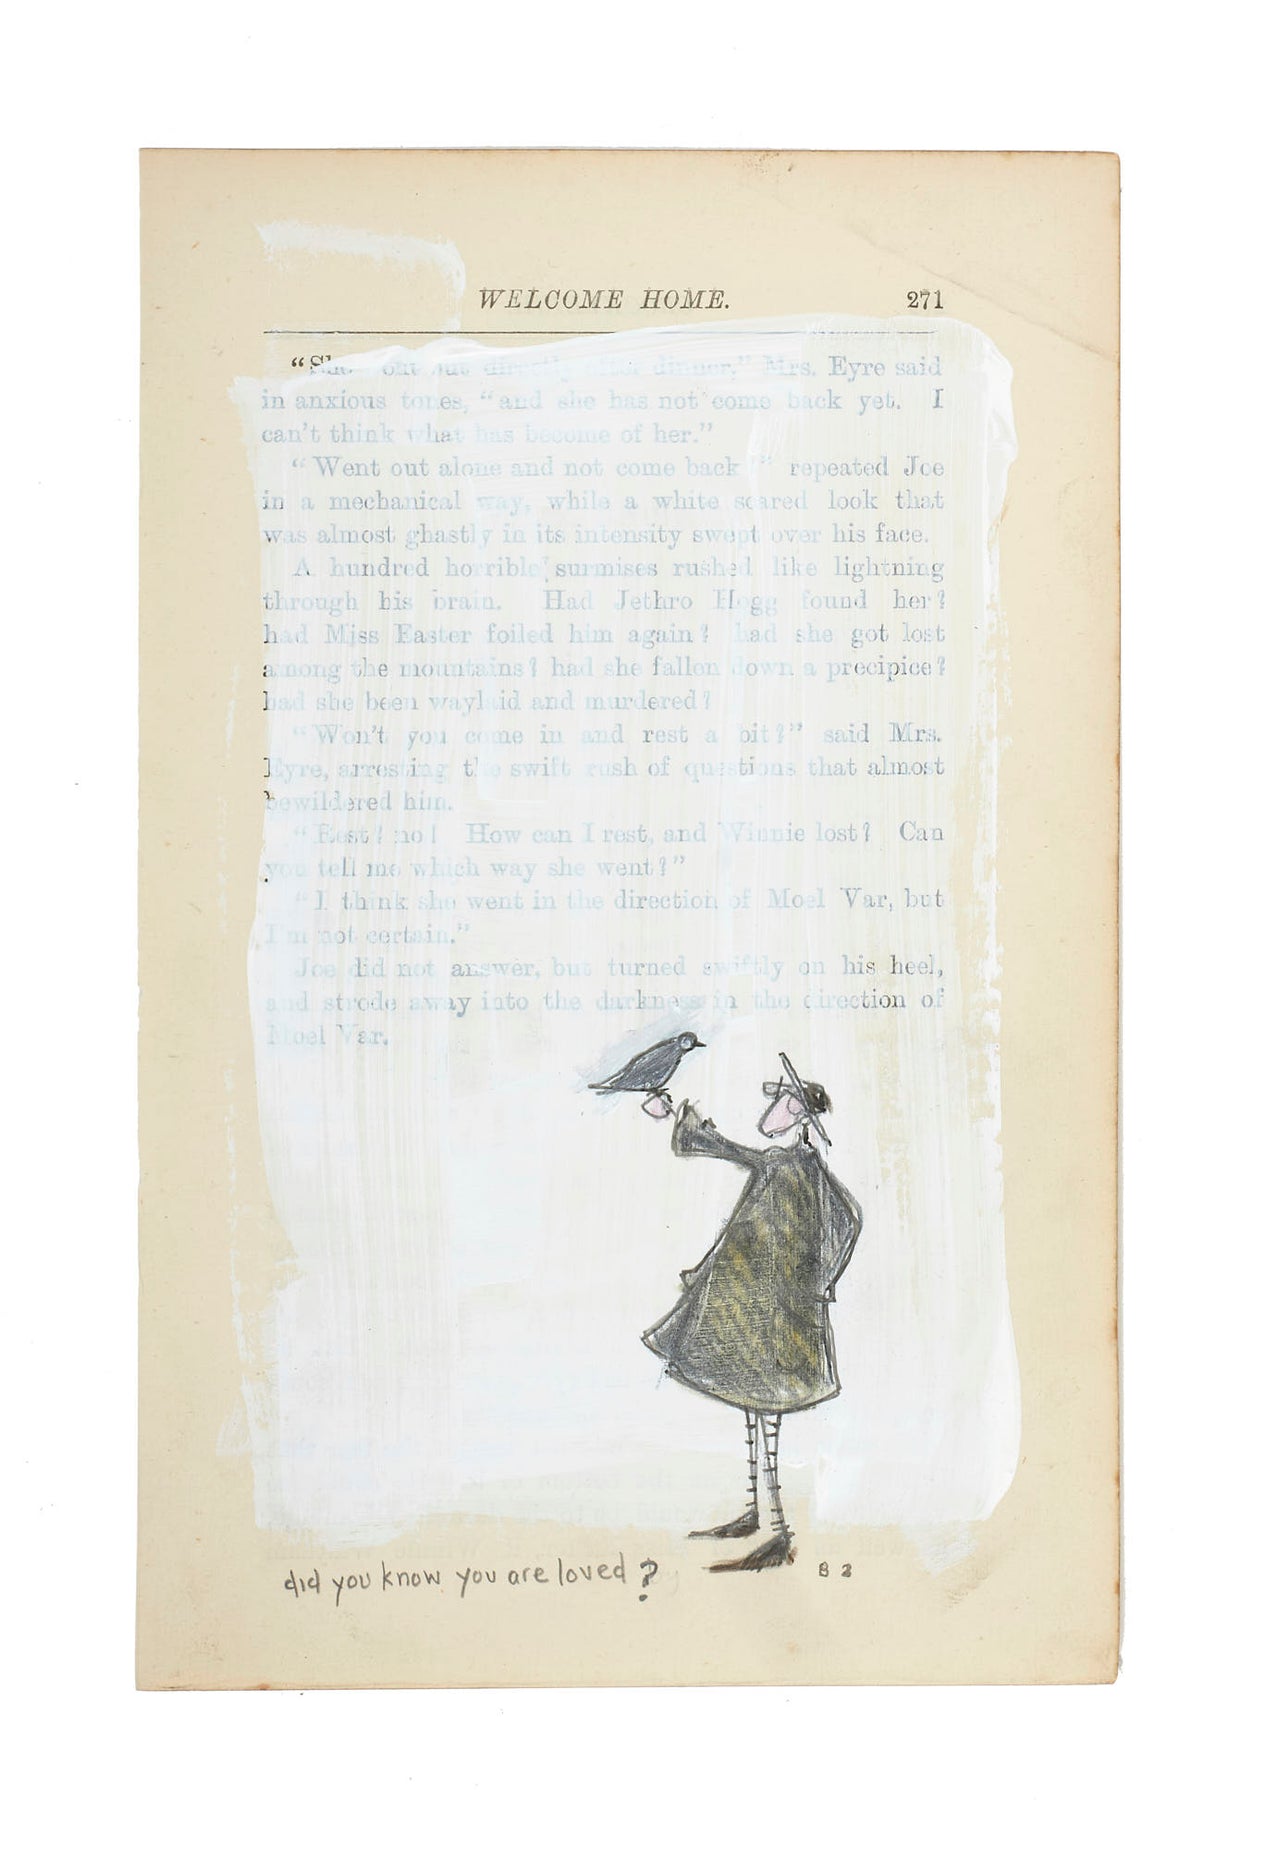 WELCOME HOME. 271
"She out but directly after dinner," Mrs. Eyre said
in anxious tones, "and she has not come back yet. I
can't think what has become of her."
"Went out alone and not come back!" repeated Joe
in a mechanical way, while a white scared look that
was almost ghastly in its intensity swept over his face.
A hundred horrible surmises rushed like lightning
through his brain. Had Jethro Hogg found her?
had Miss Easter foiled him again? had she got lost
among the mountains? had she fallen down a precipice?
had she been waylaid and murdered?
"Won't you come in and rest a bit?" said Mrs.
Eyre, arresting the swift rush of questions that almost
bewildered him.
"Rest? no! How can I rest, and Winnie lost? Can
you tell me which way she went?"
"I think she went in the direction of Moel Var, but
I'm not certain."
Joe did not answer, but turned swiftly on his heel,
and strode away into the darkness in the direction of
Moel Var.
did you know you are loved?
8 2